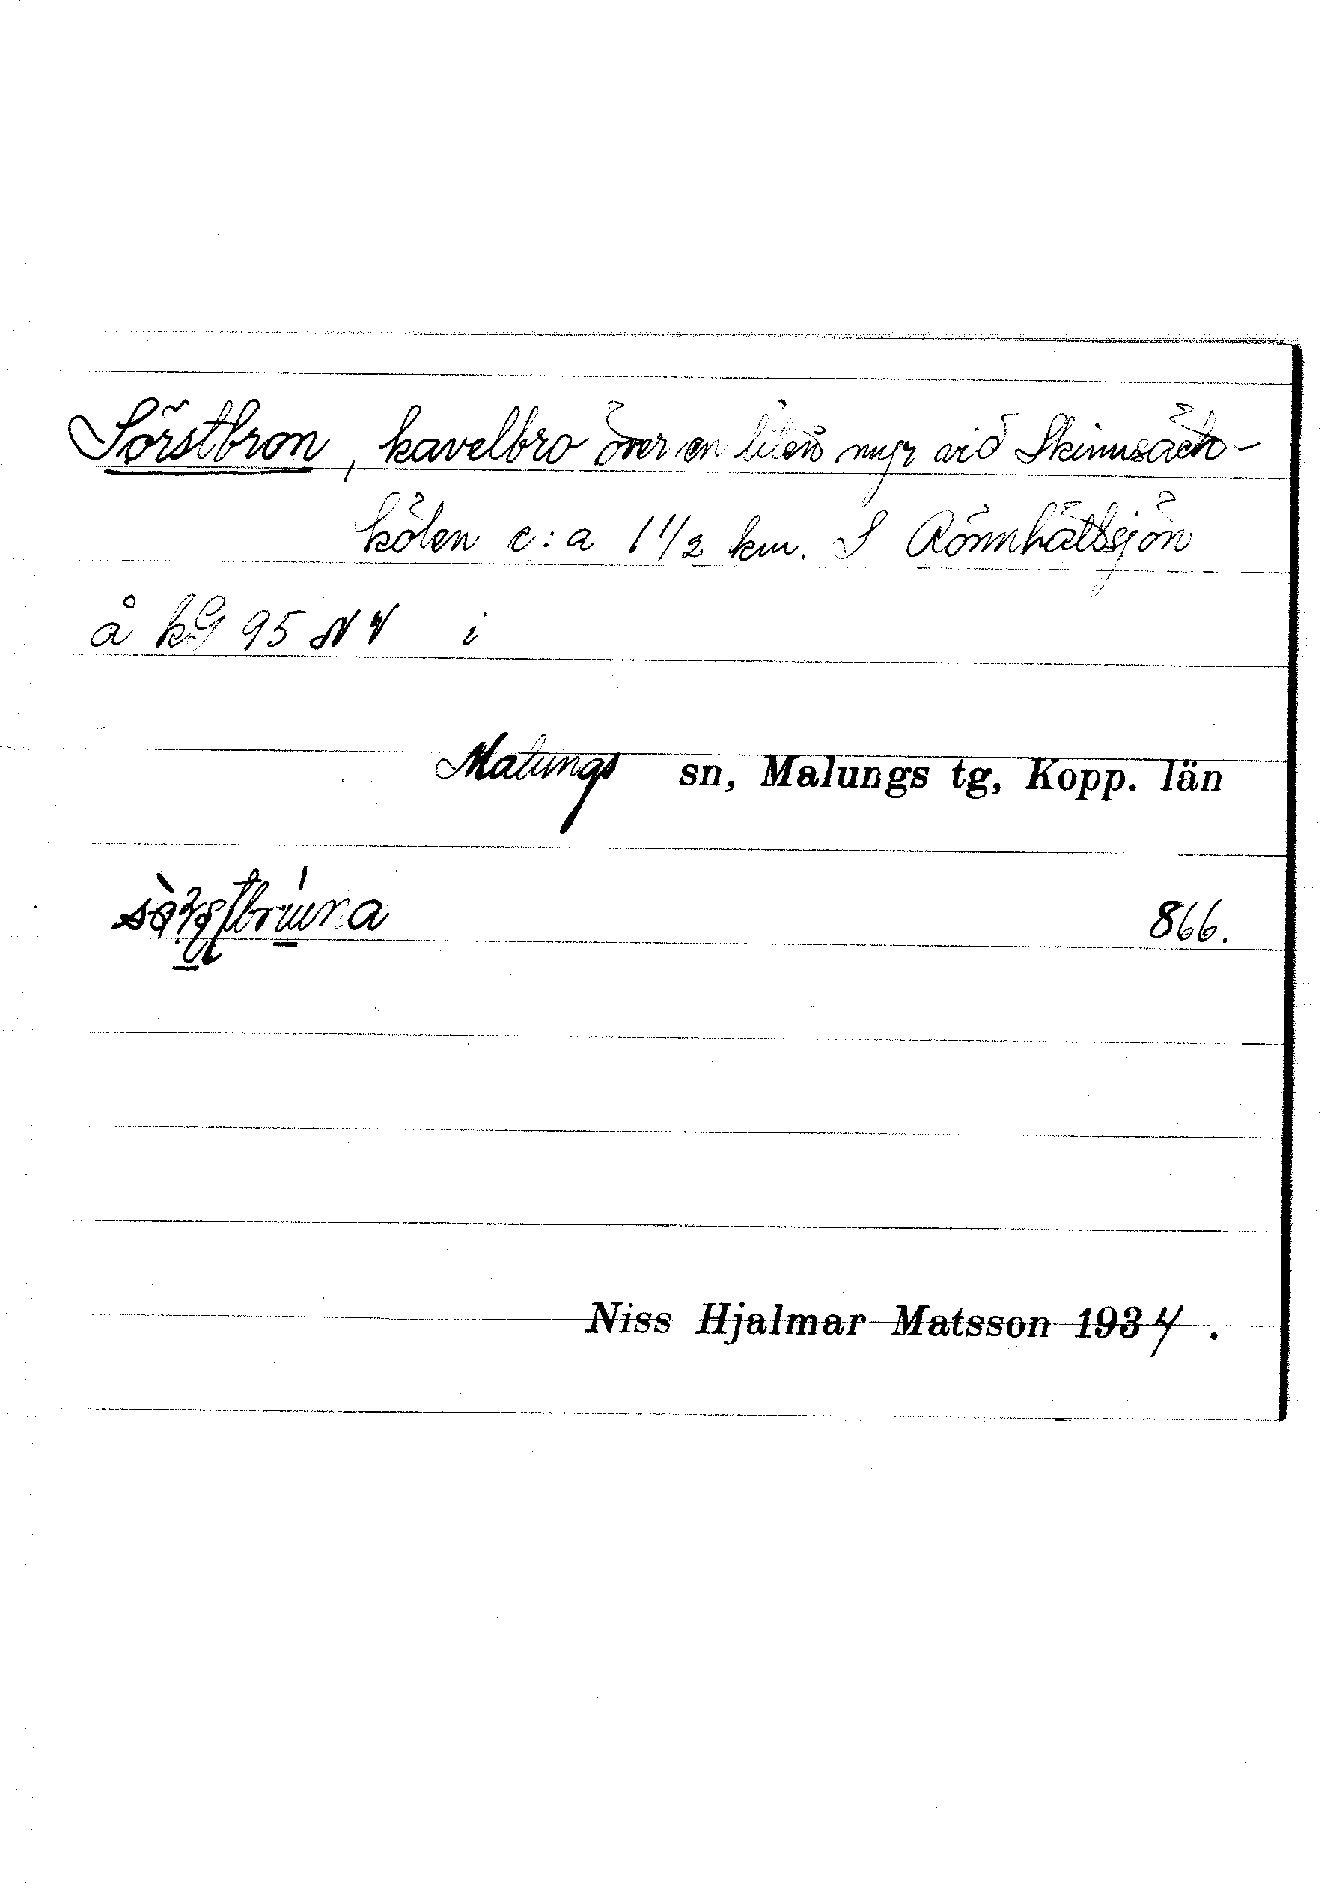 Sörstbron, kavelbro över en liten myr vid Skinnsäck-
kölen c:a 1 1/2 km. S Rönnhåtlsjön
å kG 95 NV i
Malungs sn, Malungs tg, Kopp. län
866.
Niss Hjalmar Matsson 1934.